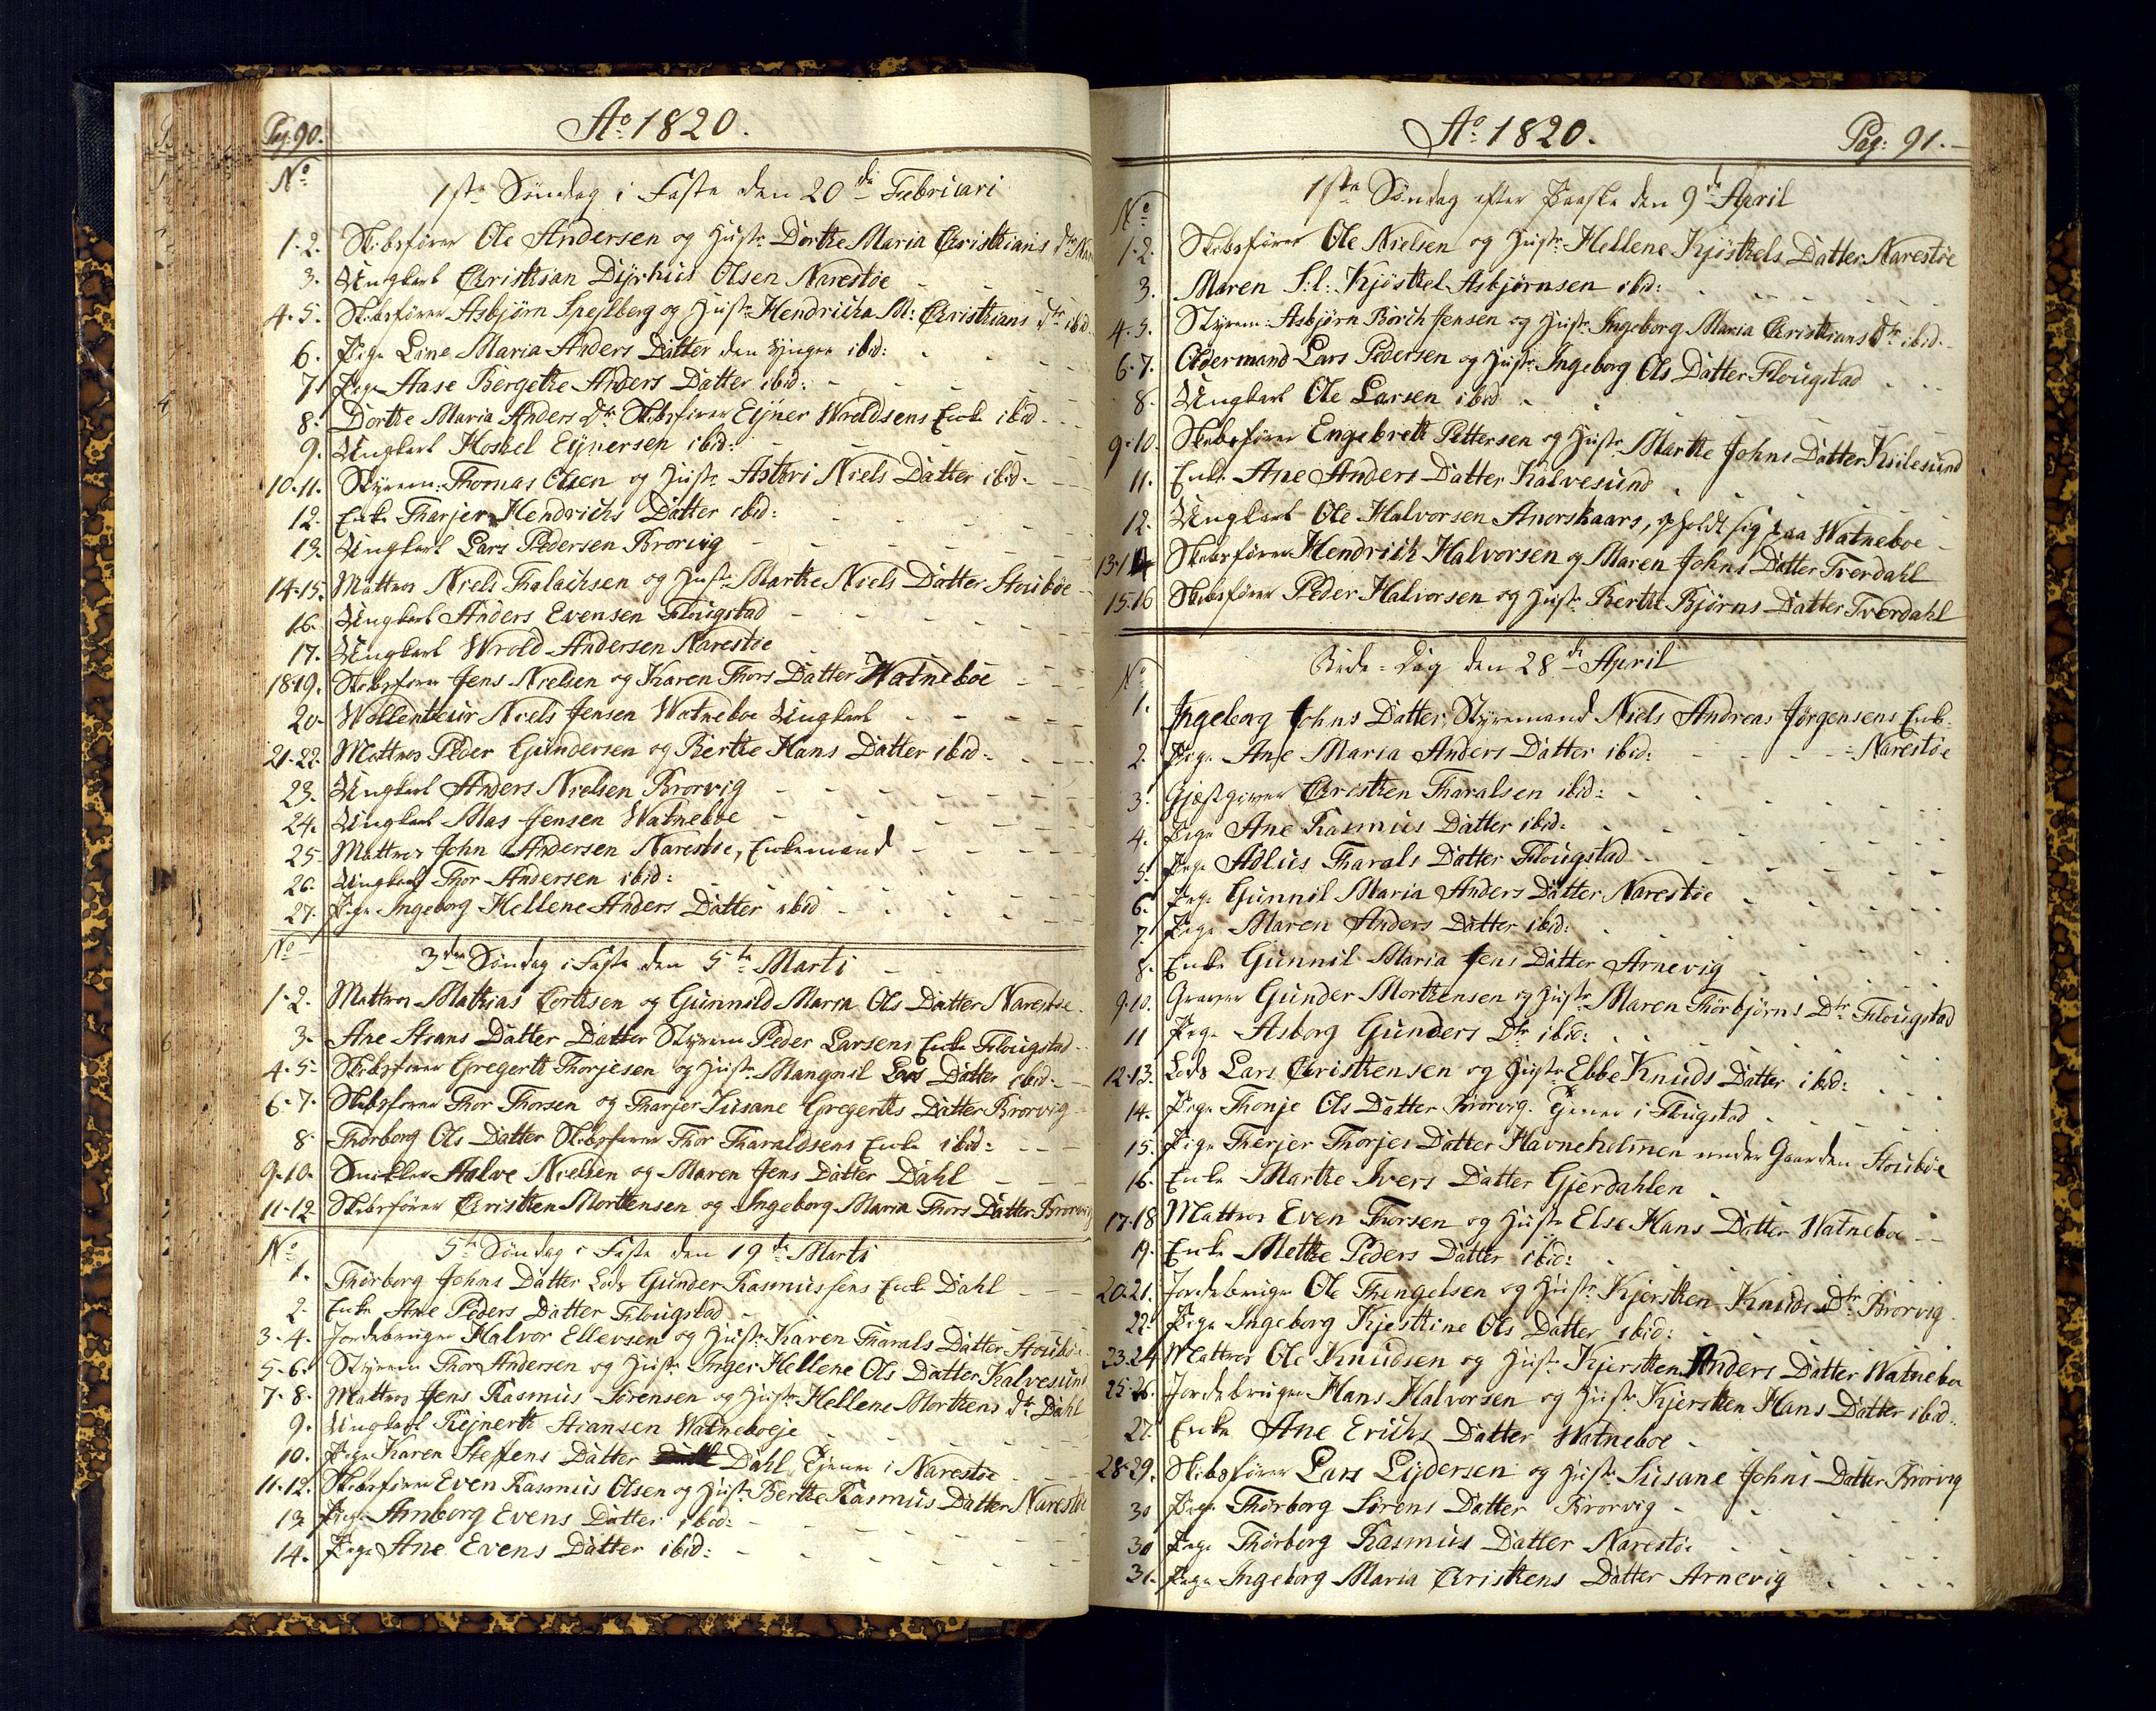 Pag. 90.
Ao 1820.
No
1ste Søndag i Faste den 20de Februari
1-2. Skibsfører Ole Andersen og Hustr: Dorthe Maria Christhians dtr Nar
3. Ungkarl Christhian Dijrhus Olsen Narestøe
4-5. Skibsfører Asbjørn Spejlberg og Hustr: Hendricha M: Christhians dtr ibid
6. Pige Lane Maria Anders Datter den yngre ibid:
7. Pige Aase Bergethe Anders Datter ibid:
8. Dorthe Maria Anders Dr Skibsfører Eijner Wroldsens Enke ibid
9. Ungkarl Hoskel Eijnersen ibid:
10-11. Styrem: Thomas Olsen og Hustr: Astori Niels Datter ibid
12. Enke Tharjer Hendrichs Datter ibid:
13. Ungkarl Lars Pedersen Brorvig
14-15. Mattros Niels Thalachsen og Hustr: Marthe Niels Datter Stoubøe
16. Ungkarl Anders Evensen Flougstad
17. Ungkarl Wrold Andersen Narestøe
18-19. Skibsfører Jens Nielsen og Karen Thors Datter Watneboe
20. Wollenteur Niels Jensen Watneboe Ungkarl
21-22. Mattros Peder Gundersen og Berthe Hans Datter ibid:
23. Ungkarl Anders Nielsen Brorvig
24. Ungkarl Mas Jensen Watneboe
25. Mattros John Andersen Narestøe, Enkemand
26. Ungkarl Thor Andersen ibid:
27. Pige Ingeborg Hellene Anders Datter ibid
No
3die Søndag i Faste den 5te Marti
1-2. Mattros Mathias Corthsen og Gunnild Maria Ols Datter Narestøe
3. Ane Stians Datter Datter Styrem Peder Larsens Enke Flougstad
4-5. Skibsfører Gregerth Thorjesen og Hustr: Mangnil Lars Datter ibid
6-7. Skibsfører Thor Thorsen og Tharjer Susane Gregerths Datter Brorvig
8. Thorborg Ols Datter Skibsfører Thor Tharaldsens Enke ibid:
9-10. Snidker Aalve Nielsen og Maren Jens Datter Dahl
11-12. Skibsfører Christhen Mortensen og Ingeborg Maria Thors Datter Brorvig
No
5te Søndag i Faste den 19de Marti
1. Thørborg Johns Datter Lods Gunder Rasmussens Enke Dahl
2. Enke Ane Peders Datter Flougstad
3-4. Jordebruger Halvor Ellevsen og Hustr: Karen Tharals Datter Stoubøe
5-6. Styrem Thor Andersen og Hustr: Inger Hellene Ols Datter Kalvesund
7-8. Mattros Jens Rasmus Sørensen og Hustr: Hellene Morthens dr: Dahl
9. Ungkarl Rejnerth Stiansen Watneboeje
10. Pige Karen Steffens Datter Dahl, tjener i Narestøe
11-12. Skibsfører Even Rasmus Olsen og Hustr: Berthe Rasmus Datter Narestøe
13. Pige Arnborg Evens Datter ibid:
14. Pige Ane Evens Datter ibid:
Ao 1820.
Pag: 91.
1ste Søndag efter Paaske den 9de April
No
1-2. Skibsfører Ole Nielsen og Hustr: Hellene Kjøsthels Datter Narestøe
3. Maren S:l: Kjøsthel Asbjørnsen ibid:
4-5. Styrem: Asbjørn Borch Jensen og Hustr: Ingeborg Maria Christhians Dr ibid
6-7. Oldermand Lars Pedersen og Hustr: Ingeborg Ols Datter Flougstad
8. Ungkarl Ole Larsen ibid
9-10. Skibsfører Engebreth Pettersen og Hustr: Marthe Johns Datter Kiilesund
11. Enke Ane Anders Datter Kalvesund
12. Ungkarl Ole Halvorsen Anorskaars, opholdt sig paa Watneboe
13-14. Skibsfører Hendrich Halvorsen og Maren Johns Datter Tverdahl
15-16 Skibsfører Peder Halvorsen og Hustr: Berthe Bjørns Datter Tverdahl
Bede-Dag den 28de April
No
1. Ingeborg Johns Datter, Styremand Niels Andreas Jørgensens Enke
Narestøe
2. Pige Ane Maria Anders Datter ibid:
3. Gjæstgiver Christhen Tharalsen ibid:
4. Pige Ane Rasmus Datter ibid:
5. Pige Adlus Tharals Datter Flougstad
6. Pige Gunnil Maria Anders Datter Narestøe
7. Pige Maren Anders Datter ibid:
8. Enke Gunnil Maria Jens Datter Arnevig
9-10. Graver Gunder Morthensen og Hustr: Maren Thorbjørns Dtr: Flougstad
11 Pige Asborg Gunders Dr ibid:
12-13. Lods Lars Christhensen og Hustr Ebbe Knuds Datter ibid:
14. Pige Thonje Ols Datter Brorvig. tjener i Flougstad
15. Pige Therjer Thorjes Datter Havneholmen under Gaarden Stoubøe
16. Enke Marthe Ivers Datter Gjerdahlen
17-18 Mattros Even Thorsen og Hustr Else Hans Datter Watneboe
19. Enke Methe Peders Datter ibid:
20-21. Jordebruger Ole Thengelsen og Hustr: Kjersthen Knuds Dtr: Brorvig
22. Pige Ingeborg Kjesthine Ols Datter ibid:
23-24 Mattros Ole Knudsen og Hustr: Kjersthen Anders Datter Watneboe
25-26. Jordebruger Hans Halvorsen og Hustr Kjersthen Hans Datter ibid
27. Enke Ane Erichs Datter Watneboe
28-29. Skibsfører Lars Lydersen og Hustr: Susane Johns Datter Brorvig
30 Pige Thørborg Sørens Datter Brorvig
30 Pige Thørborg Rasmus Datter Narestøe
31. Pige Ingeborg Maria Christhens Datter Arnevig